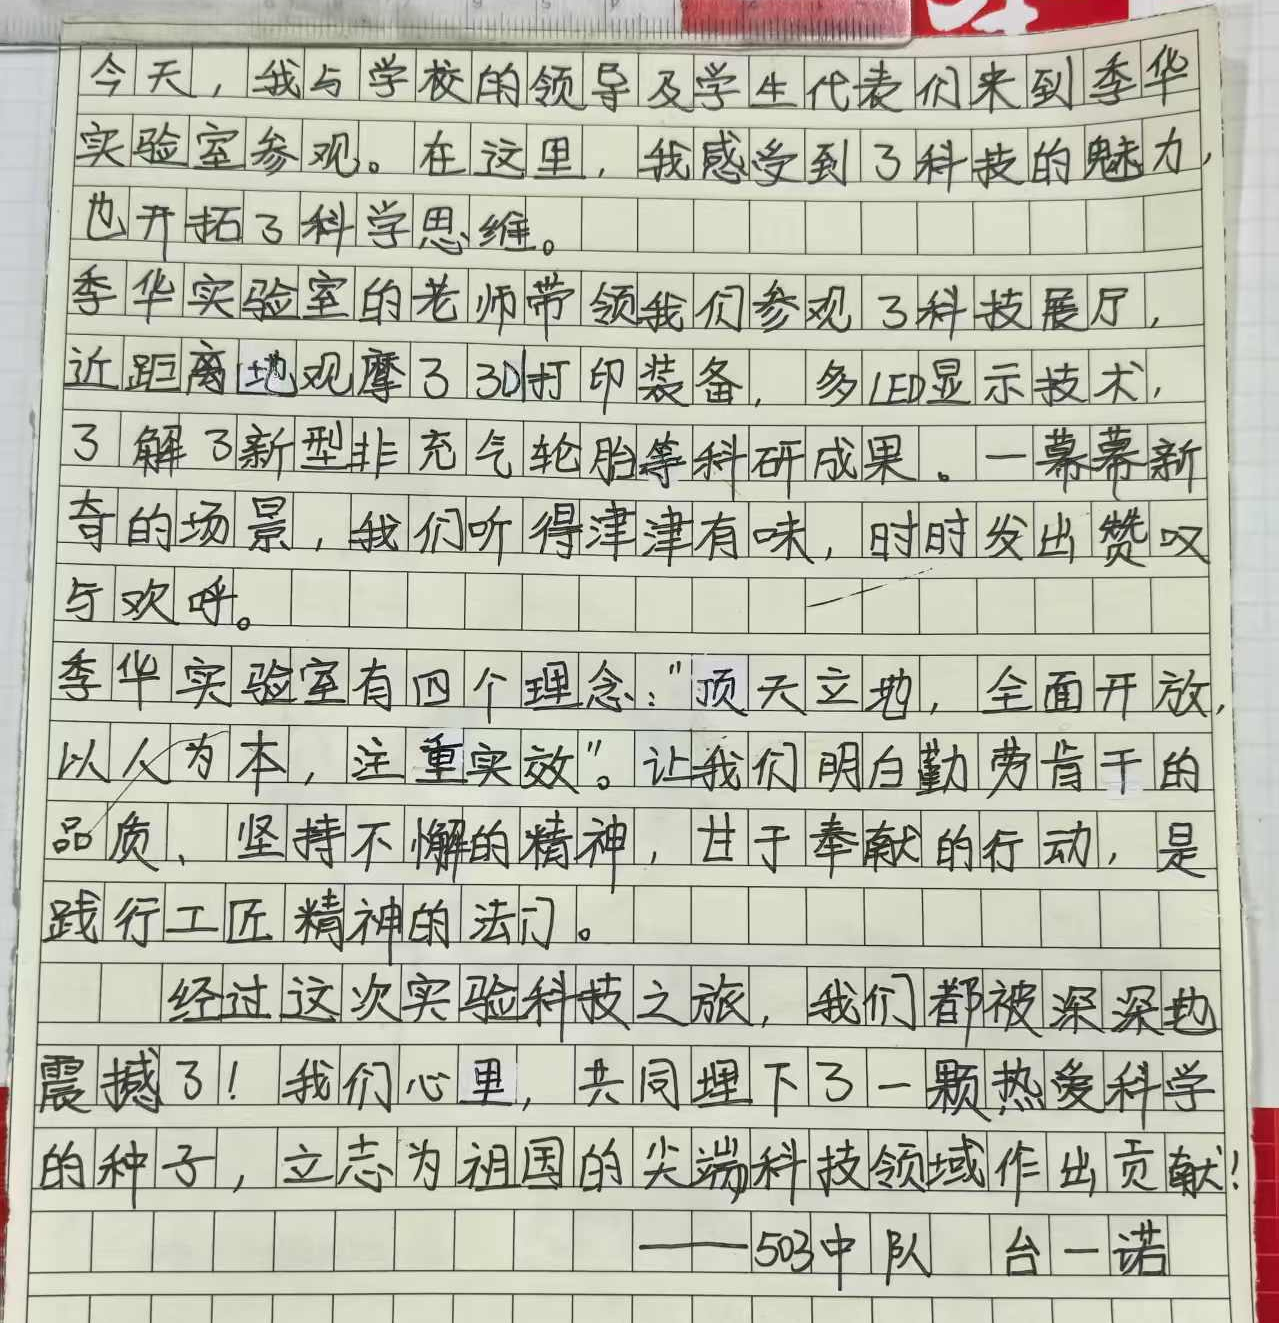 今天，我与学校的领导及学生代表们来到季华
实验室参观。在这里，我感受到了科技的魅力，
也开拓了科学思维。
季华实验室的老师带领我们参观了科技展厅，
近距离地观摩了3D打印装备，多LED显示技术，
了解了新型非充气轮胎等科研成果。一幕幕新
奇的场景，我们听得津津有味，时时发出赞叹
与欢呼。
季华实验室有四个理念："顶天立地，全面开放，
以人为本，注重实效"。让我们明白勤劳肯干的
品质、坚持不懈的精神，甘于奉献的行动，是
践行工匠精神的法门。
经过这次实验科技之旅，我们都被深深地
震撼了！我们心里，共同埋下了一颗热爱科学
的种子，立志为祖国的尖端科技领域作出贡献！
——503中队 台一诺